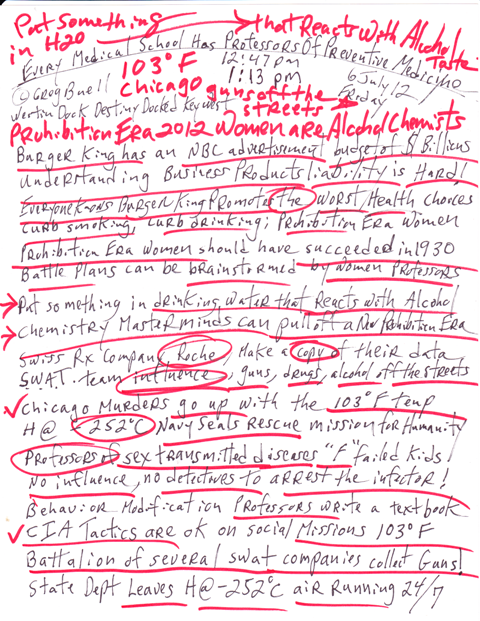 Put Something
in H20
that Reacts With Alcohol
Taste
Every Medical School Has Professors Of Preventive Medicine
12:47 pm
1:13 pm
6 July 12
Friday
© Greg Buell
103°F
Chicago guns off the
streets
Key West
Prohibition Era 2012 Women are Alcohol Chemists
Burger King has an NBC advertisement budget of $ Billions
Understanding Business Products liability is Hard!
Everyone knows Burger King Promotes the worst Health choices
Curb smoking, curb drinking; Prohibition Era Women
Prohibition Era women should have succeeded in 1930
Battle Plans can be brainstormed by women Professors
Put something in drinking water that Reacts with Alcohol
Chemistry Masterminds can pull off a New Prohibition Era
Swiss Rx Company Roche, Make a copy of their data
S.W.A.T. team influence, guns, drugs, alcohol off the streets
Chicago Murders go up with the 103°F temp
H@ -252°C Navy Seals Rescue mission for Humanity
Professors of sex transmitted diseases "F" failed kids!
No influence, no detectives to arrest the infector!
Behavior Modification Professors write a textbook
CIA Tactics are ok on social Missions 103°F
Battalion of several swat companies collect Guns!
State Dept Leaves H@-252°C air Running 24/7